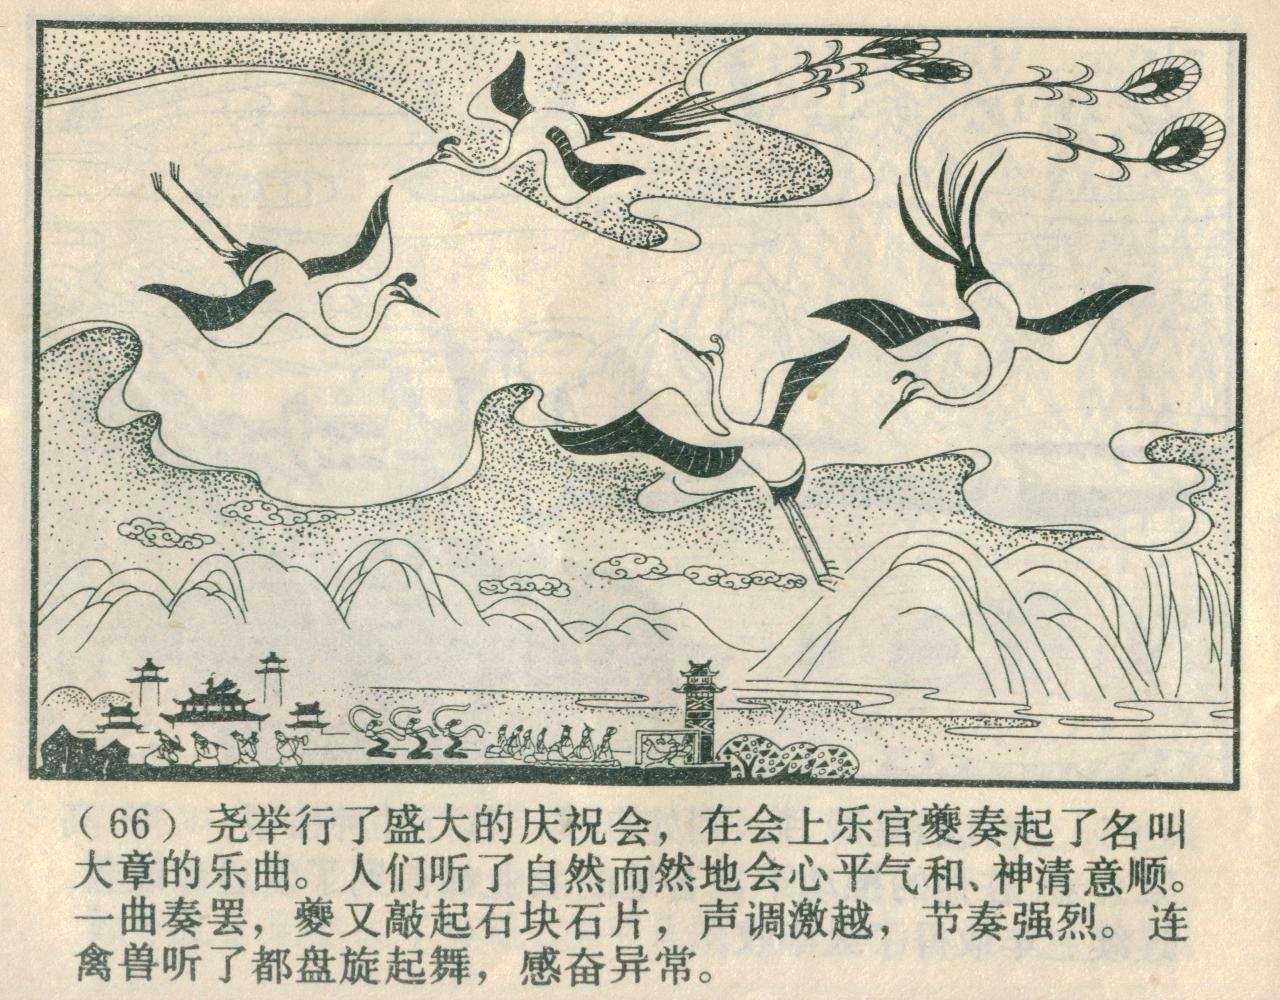 （66）尧举行了盛大的庆祝会，在会上乐官夔奏起了名叫
大章的乐曲。人们听了自然而然地会心平气和、神清意顺。
一曲奏罢，夔又敲起石块石片，声调激越，节奏强烈。连
禽兽听了都盘旋起舞，感奋异常。